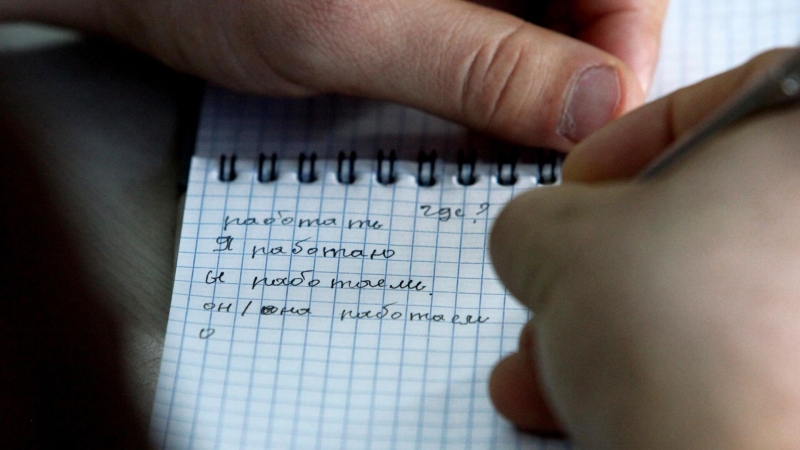 работать где?
Я работаю
ы работаешь.
он/она работает
о